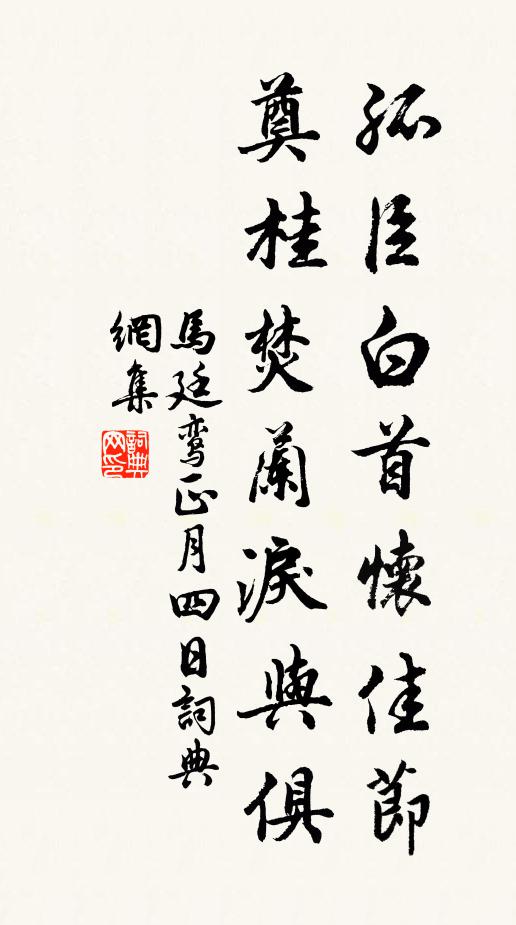 孤臣白首懷佳節
奠桂焚蘭淚與俱
馬廷鸞正月四日詞典
網集
詞典
网印